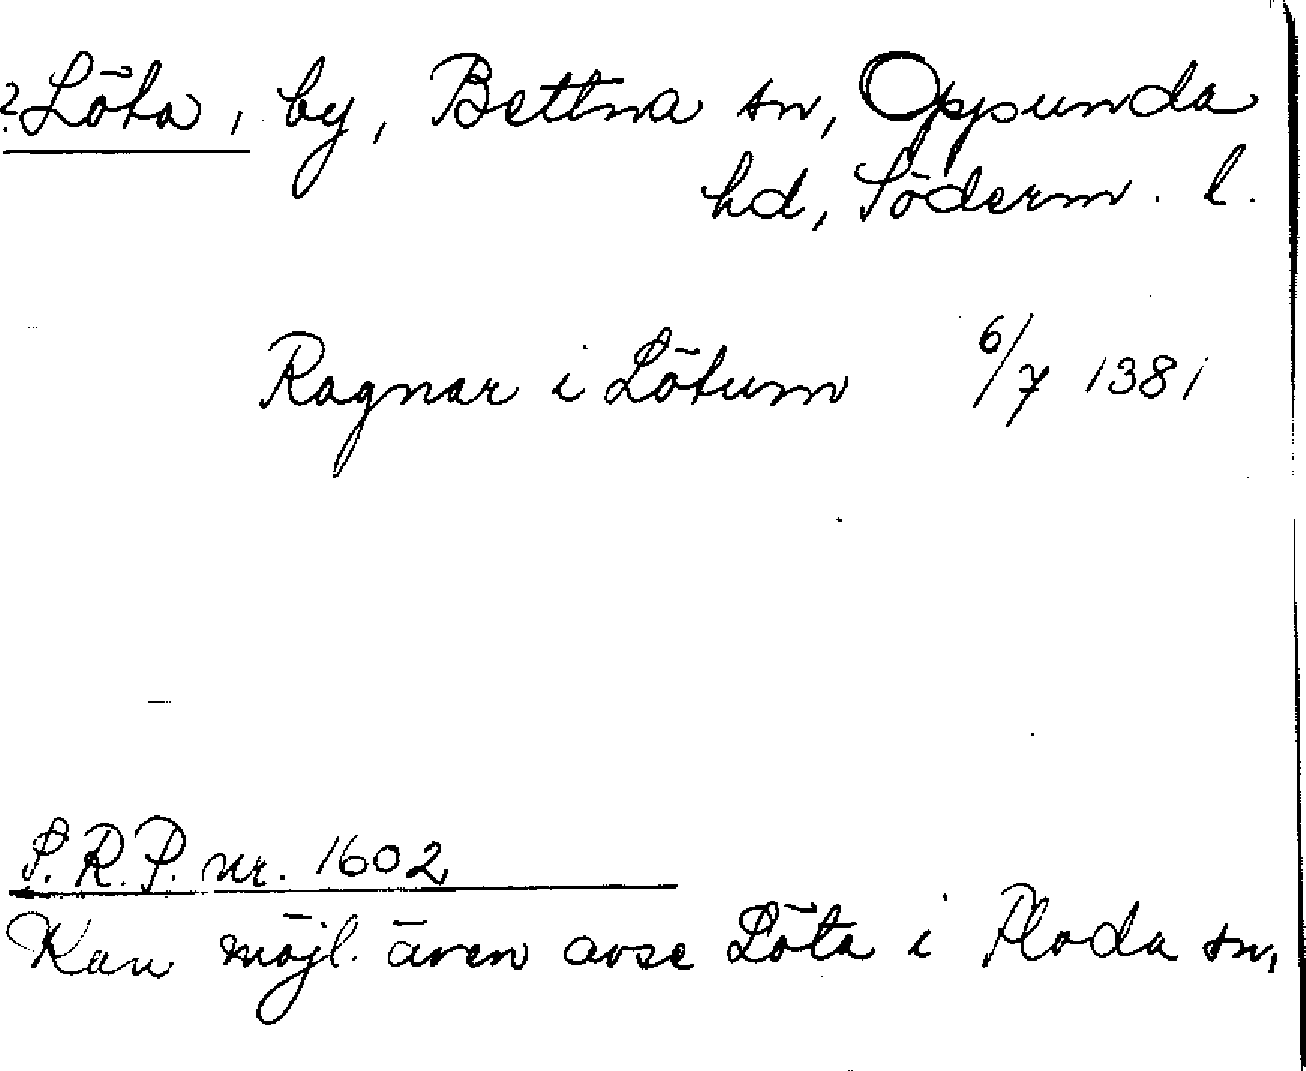 ? Löta, by, Bettna sn, Oppunda
hd, Söderm. l.
Ragnar i Lötum 6/7 1381
S.R.P. nr. 1602
Kan möjl. även avse Löta i Floda sn,